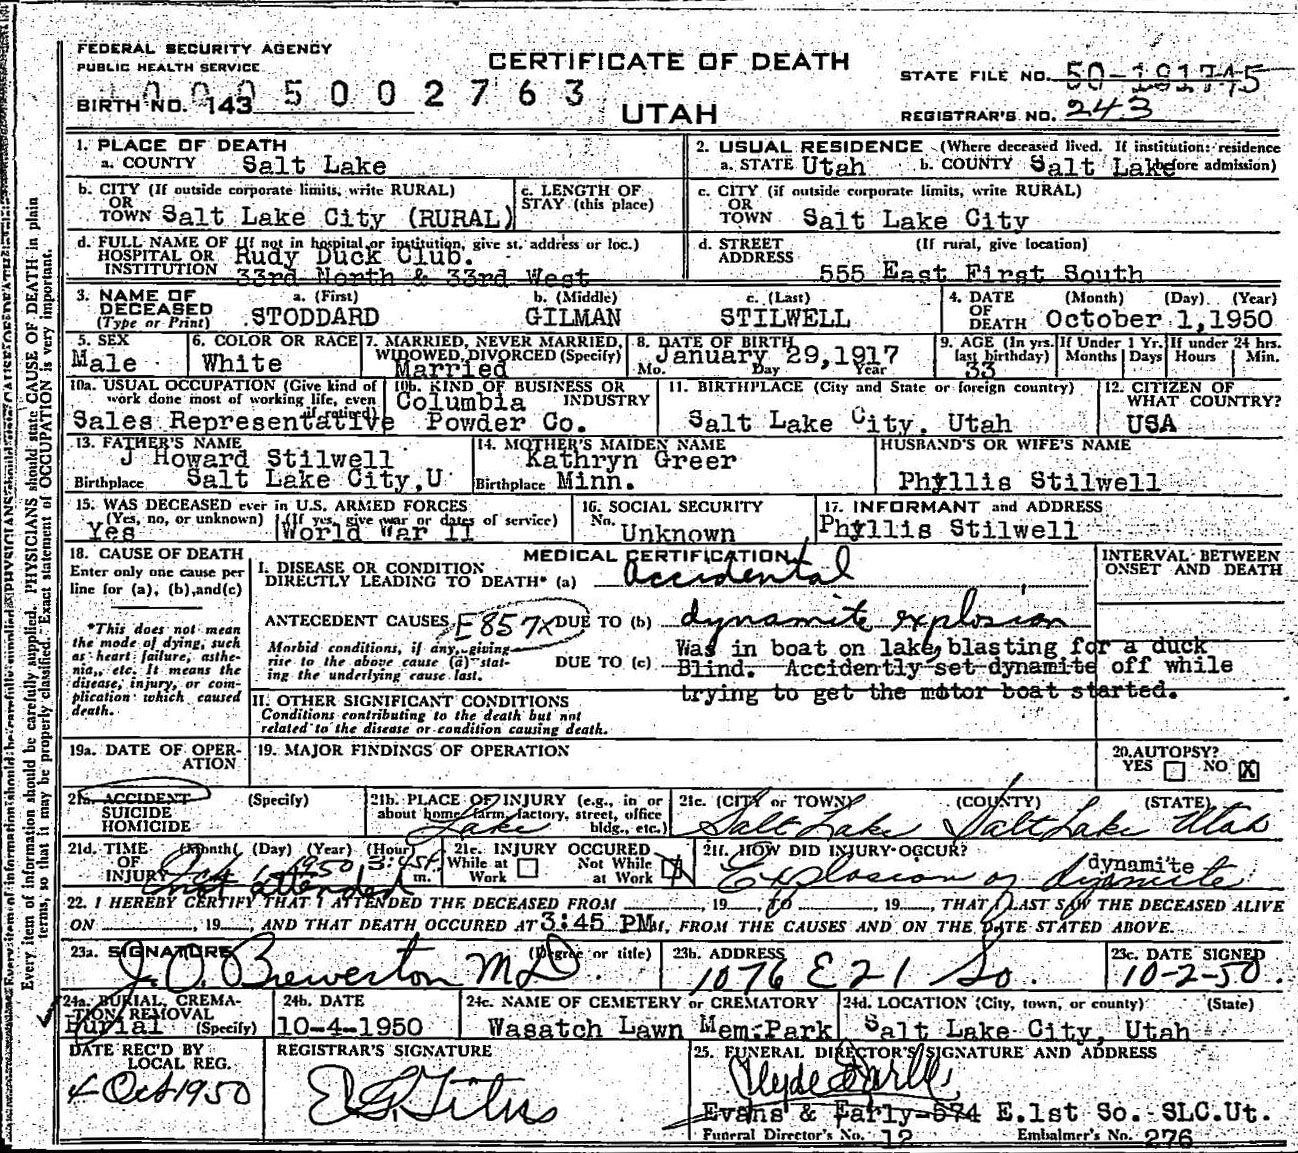 FEDERAL SECURITY AGENCY
PUBLIC HEALTH SERVICE
CERTIFICATE OF DEATH
UTAH
STATE FILE NO. 50-181745
BIRTH NO. 143
5002763
REGISTRAR'S NO. 243
1. PLACE OF DEATH
a. COUNTY Salt Lake
2. USUAL RESIDENCE (Where deceased lived. If institution: residence before admission)
a. STATE Utah b. COUNTY Salt Lake
b. CITY (If outside corporate limits, write RURAL)
OR
TOWN Salt Lake City (RURAL)
c. LENGTH OF
STAY (this place)
c. CITY (if outside corporate limits, write RURAL)
OR
TOWN Salt Lake City
d. FULL NAME OF (If not in hospital or institution, give st. address or loc.)
HOSPITAL OR
INSTITUTION
Rudy Duck Club.
33rd North & 33rd West
d. STREET (If rural, give location)
ADDRESS
555 East First South
3. NAME OF
DECEASED
(Type or Print)
a. (First) b. (Middle) c. (Last)
STODDARD GILMAN STILWELL
4. DATE (Month) (Day) (Year)
OF
DEATH October 1,1950
5. SEX
Male
6. COLOR OR RACE
White
7. MARRIED, NEVER MARRIED,
WIDOWED, DIVORCED (Specify)
Married
8. DATE OF BIRTH
January 29,1917
Mo. Day Year
9. AGE (In yrs.
last birthday)
33
If Under 1 Yr.
Months Days
If under 24 hrs.
Hours Min.
10a. USUAL OCCUPATION (Give kind of
work done most of working life, even
if retired)
Sales Representative
10b. KIND OF BUSINESS OR
INDUSTRY
Columbia
Powder Co.
11. BIRTHPLACE (City and State or foreign country)
Salt Lake City, Utah
12. CITIZEN OF
WHAT COUNTRY?
USA
13. FATHER'S NAME
J Howard Stilwell
Birthplace Salt Lake City,U
14. MOTHER'S MAIDEN NAME
Kathryn Greer
Birthplace Minn.
HUSBAND'S OR WIFE'S NAME
Phyllis Stilwell
15. WAS DECEASED ever in U.S. ARMED FORCES
(Yes, no, or unknown) (If yes, give war or dates of service)
Yes World War II
16. SOCIAL SECURITY
No.
Unknown
17. INFORMANT and ADDRESS
Phyllis Stilwell
18. CAUSE OF DEATH
Enter only one cause per
line for (a), (b), and(c)
*This does not mean
the mode of dying, such
as heart failure, asthe-
nia, etc. It means the
disease, injury, or com-
plication which caused
death.
MEDICAL CERTIFICATION
I. DISEASE OR CONDITION
DIRECTLY LEADING TO DEATH* (a) Accidental
ANTECEDENT CAUSES E857X DUE TO (b) dynamite explosion
Morbid conditions, if any, giving
rise to the above cause (a) stat-
ing the underlying cause last.
DUE TO (c) Was in boat on lake, blasting for a duck
Blind. Accidently set dynamite off while
trying to get the motor boat started.
INTERVAL BETWEEN
ONSET AND DEATH
II. OTHER SIGNIFICANT CONDITIONS
Conditions contributing to the death but not
related to the disease or condition causing death.
19a. DATE OF OPER-
ATION
19. MAJOR FINDINGS OF OPERATION
20. AUTOPSY?
YES NO X
21a. ACCIDENT (Specify)
SUICIDE
HOMICIDE
21b. PLACE OF INJURY (e.g., in or
about home, farm, factory, street, office
bldg., etc.)
Lake
21c. (CITY or TOWN) (COUNTY) (STATE)
Salt Lake Salt Lake Utah
21d. TIME (Month) (Day) (Year) (Hour)
OF
INJURY Oct 1 1950 3:45P m.
21e. INJURY OCCURED
While at Work Not While at Work
21f. HOW DID INJURY OCCUR?
Explosion of dynamite
dynamite
not attended
22. I HEREBY CERTIFY THAT I ATTENDED THE DECEASED FROM , 19 TO , 19 , THAT I LAST SAW THE DECEASED ALIVE
ON , 19 , AND THAT DEATH OCCURED AT 3:45 PM M, FROM THE CAUSES AND ON THE DATE STATED ABOVE.
23a. SIGNATURE (Degree or title)
J. O. Brewerton MD
23b. ADDRESS
1076 E 21 So
23c. DATE SIGNED
10-2-50
24a. BURIAL, CREMA-
TION, REMOVAL
Burial (Specify)
24b. DATE
10-4-1950
24c. NAME OF CEMETERY or CREMATORY
Wasatch Lawn Mem.Park
24d. LOCATION (City, town, or county) (State)
Salt Lake City, Utah
DATE REC'D BY
LOCAL REG.
4 Oct 1950
REGISTRAR'S SIGNATURE
25. FUNERAL DIRECTOR'S SIGNATURE AND ADDRESS
Evans & Early-574 E.1st So. SLC.Ut.
Funeral Director's No. 12 Embalmer's No. 276
Every item of information should be carefully supplied. PHYSICIANS should state CAUSE OF DEATH in plain
terms, so that it may be properly classified. Exact statement of OCCUPATION is very important.